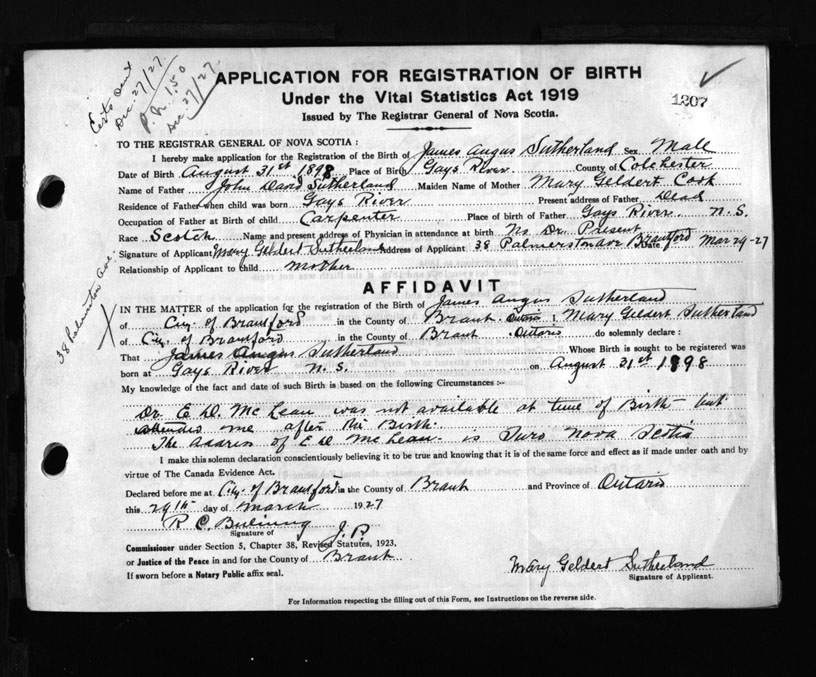 Certs Sent
Dec. 27/27
P.N. 1.50
Dec 27/27
APPLICATION FOR REGISTRATION OF BIRTH
Under the Vital Statistics Act 1919
Issued by The Registrar General of Nova Scotia.
1207
TO THE REGISTRAR GENERAL OF NOVA SCOTIA:
I hereby make application for the Registration of the Birth of James Angus Sutherland Sex Male
Date of Birth August 31st 1898 Place of Birth Gays River County of Colchester
Name of Father John David Sutherland Maiden Name of Mother Mary Geldert Cook
Residence of Father when child was born Gays River Present address of Father Dead
Occupation of Father at Birth of child Carpenter Place of birth of Father Gays River N.S.
Race Scotch Name and present address of Physician in attendance at birth No Dr. Present
Signature of Applicant Mary Geldert Sutherland Address of Applicant 38 Palmerston ave Brantford Date Mar 29-27
Relationship of Applicant to child mother
38 Palmerston Ave.
AFFIDAVIT
IN THE MATTER of the application for the registration of the Birth of James Angus Sutherland
of City of Brantford in the County of Brant Ontario I, Mary Geldert Sutherland
of City of Brantford in the County of Brant Ontario do solemnly declare:
That James Angus Sutherland Whose Birth is sought to be registered was
born at Gays River N.S. on August 31st 1898
My knowledge of the fact and date of such Birth is based on the following Circumstances:-
Dr. E. D. McLean was not available at time of Birth - but
attended me after the Birth.
The address of E D McLean is Turo Nova Scotia
I make this solemn declaration conscientiously believing it to be true and knowing that it is of the same force and effect as if made under oath and by
virtue of The Canada Evidence Act.
Declared before me at City of Brantford in the County of Brant and Province of Ontario
this 29th day of March 1927
R. C. J.P.
Signature of
Commissioner under Section 5, Chapter 38, Revised Statutes, 1923,
or Justice of the Peace in and for the County of Brant
If sworn before a Notary Public affix seal.
Mary Geldert Sutherland
Signature of Applicant.
For Information respecting the filling out of this Form, see Instructions on the reverse side.